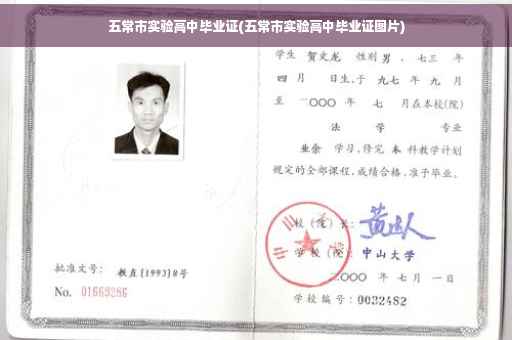 五常市实验高中毕业证(五常市实验高中毕业证图片)
学生 贺文龙 性别 男 、七三 年
四 月 日生,于 九七 年 九 月
至 二〇〇〇 年 七 月在本校(院)
法 学 专业
业余 学习,修完 本 科教学计划
规定的全部课程,成绩合格,准予毕业。
校(院)长:
学校(院): 中山大学
二〇〇〇 年 七 月 一 日
学校编号: 0032482
批准文号: 教直(1993)8号
No. 01663286